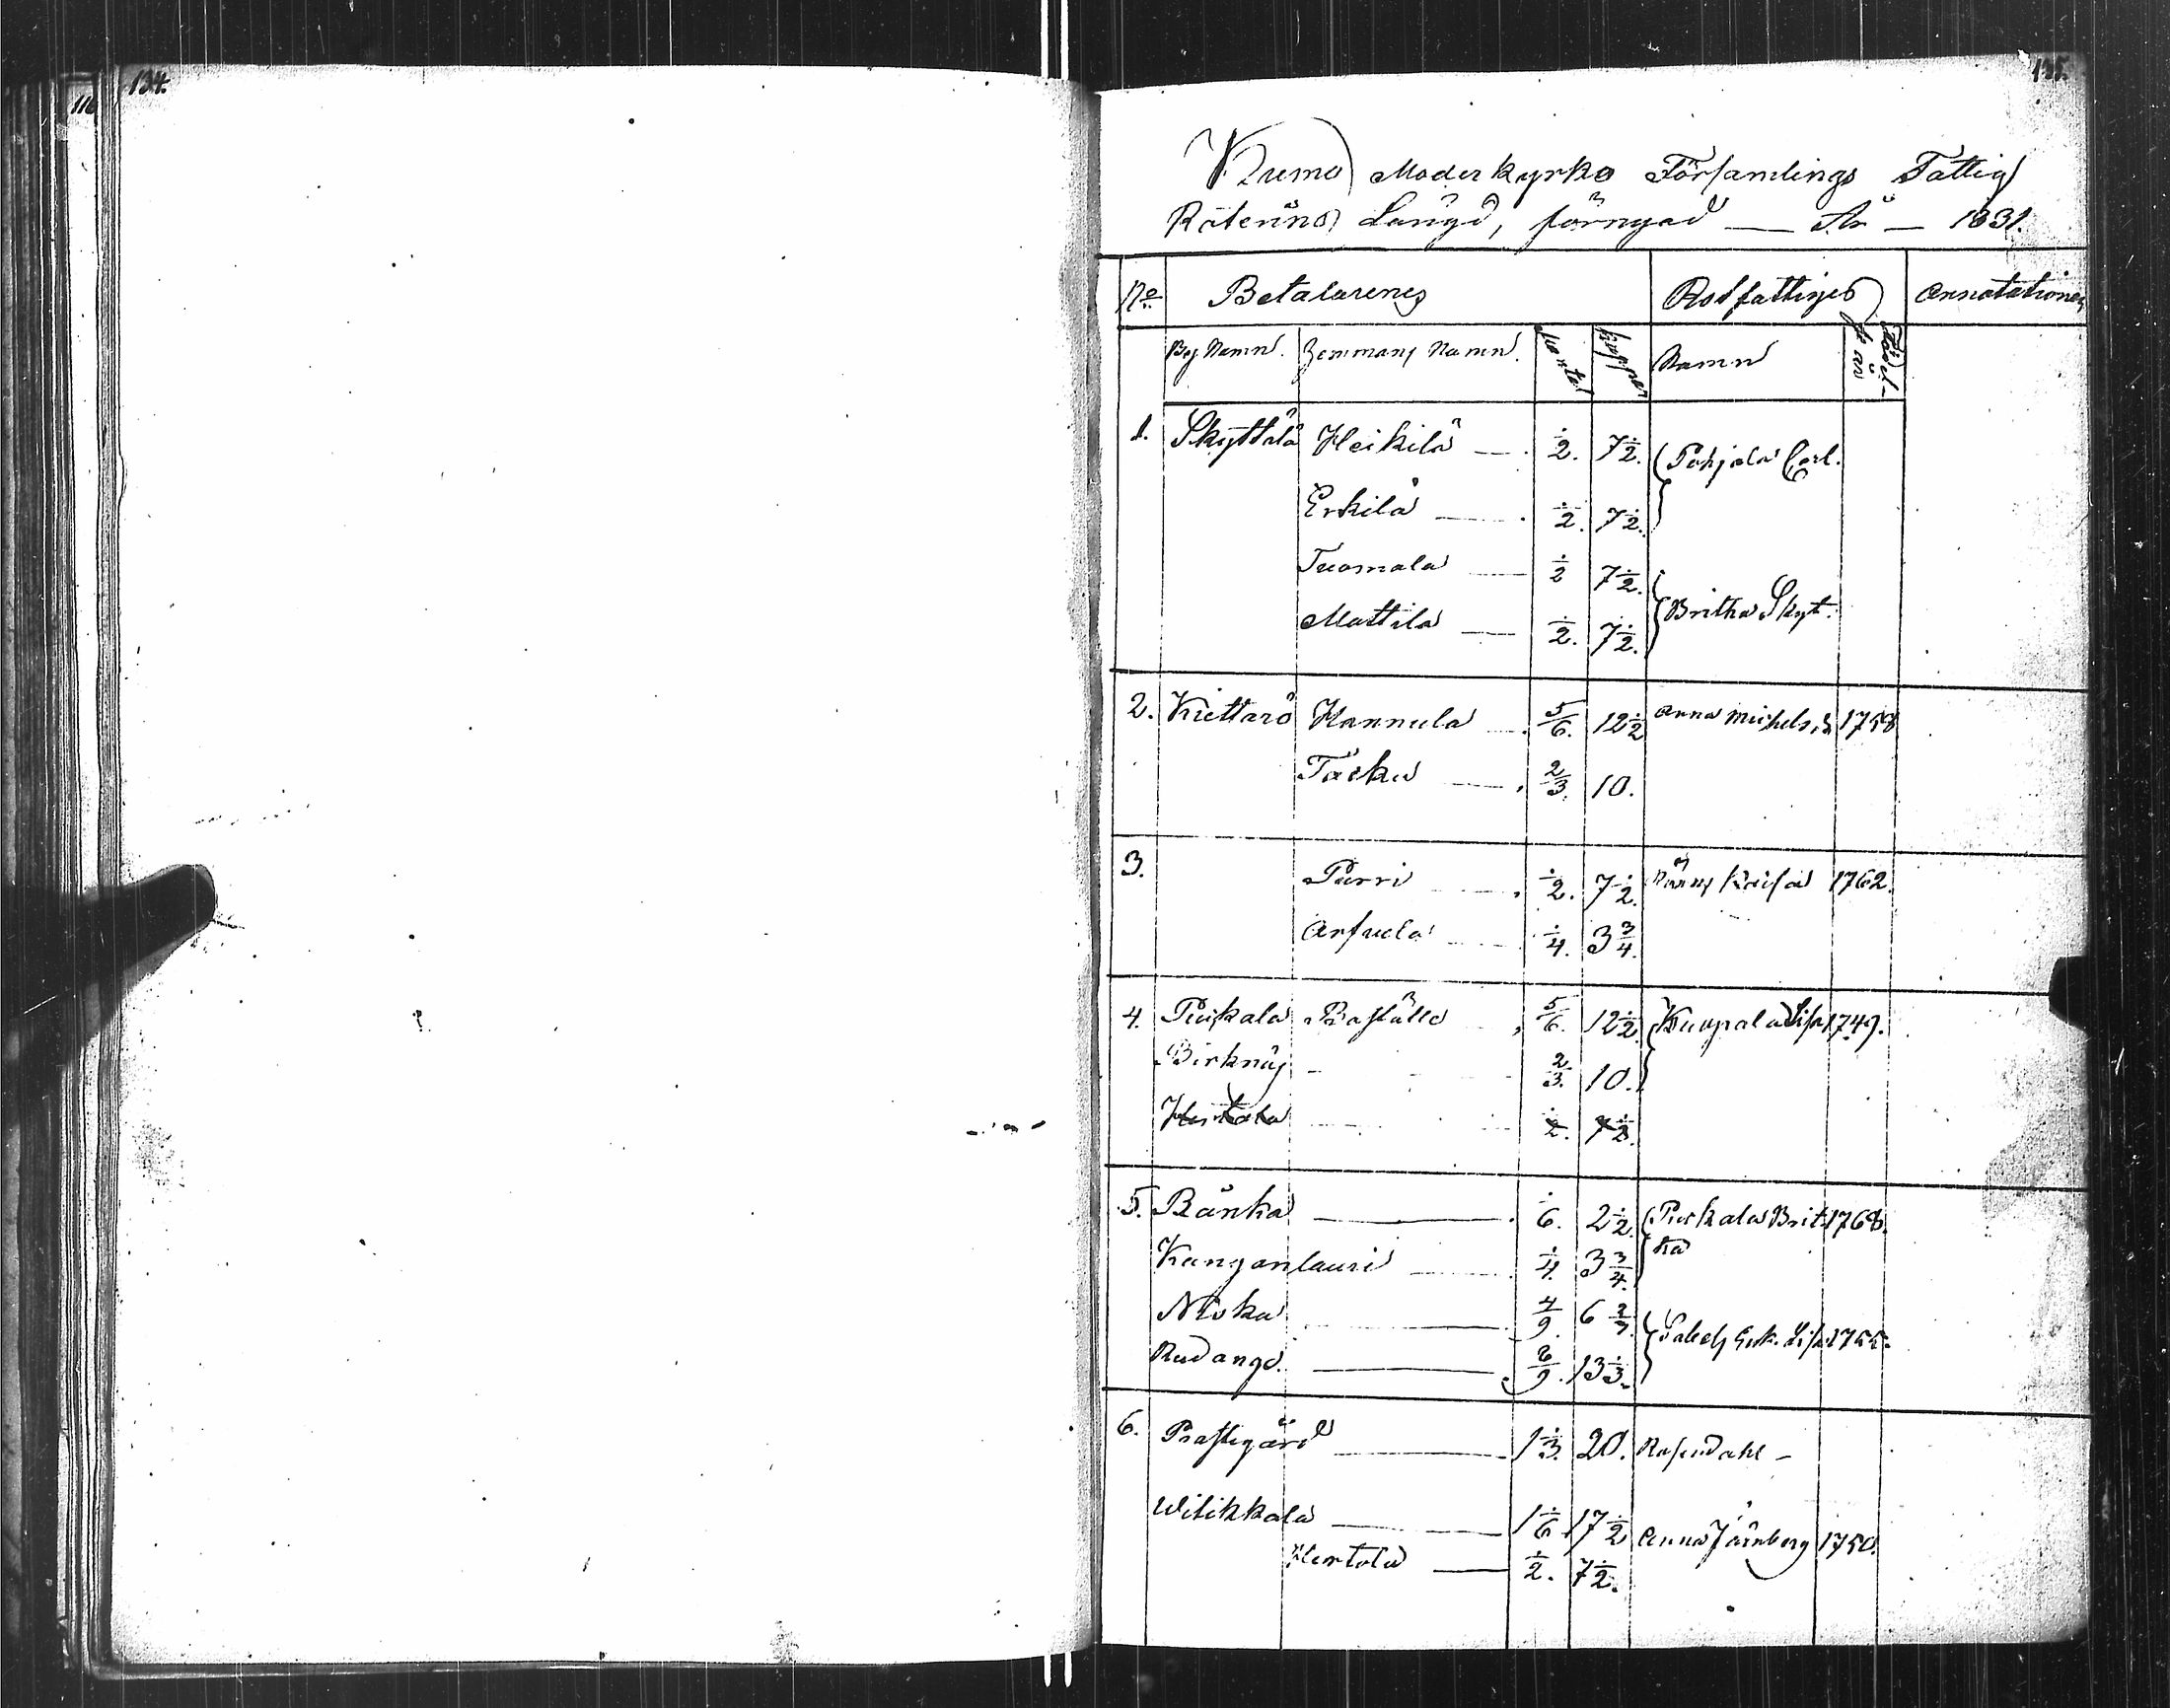 134.
116
135.
Kumo Moderkyrko Församlings Fattig
Roternas Längd, förnyad — År — 1831.
No Betalarenes Rotfattiges Annotationer
By Namn. Hemmans Namn. mantal kappar Namn Födel-
se år
1. Skyttälä Heikilä — 1/2. 7 1/2. Pohjala Carl.
Erkilä — 1/2. 7 1/2.
Tuomala — 1/2 7 1/2.
Mattila — 1/2. 7 1/2. Britha Skyt.
2. Kiettarö Hannula 5/6. 12 1/2 Anna Michels. 1758
Täcku — 2/3. 10.
3. Purri 1/2. 7 1/2. 1762.
Arfvela 1/4. 3 3/4.
4. Puskala Boställe 5/6. 12 1/2. Kuopala Lisa 1749.
Birknäs - 2/3. 10.
Hertola 1/2. 7 1/2.
5. Ränkä — 1/6. 2 1/2. Puskala Brit 1768.
Kanganlauri — 1/4. 3 3/4. ha
Niska — 4/9. 6 2/3. Erk. Lisa 1755.
Rudanga. — 8/9. 13 1/3.
6. Prästegård — 1 1/3. 20. Rosendahl -
Wilikkala — 1 1/6. 17 1/2 Anna Järnberg 1750.
Hertola — 1/2. 7 1/2.